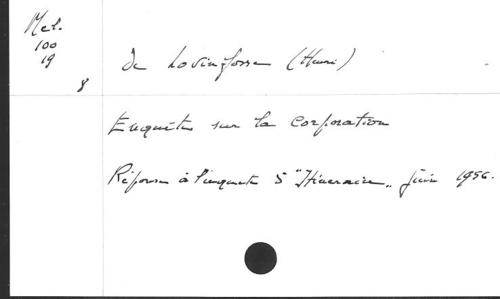 Mel.
100
19
8
de Lovinfosse (Henri)
Enquête sur la corporation
Réponse à l'enquête 5 "Itinéraire", juin 1956.